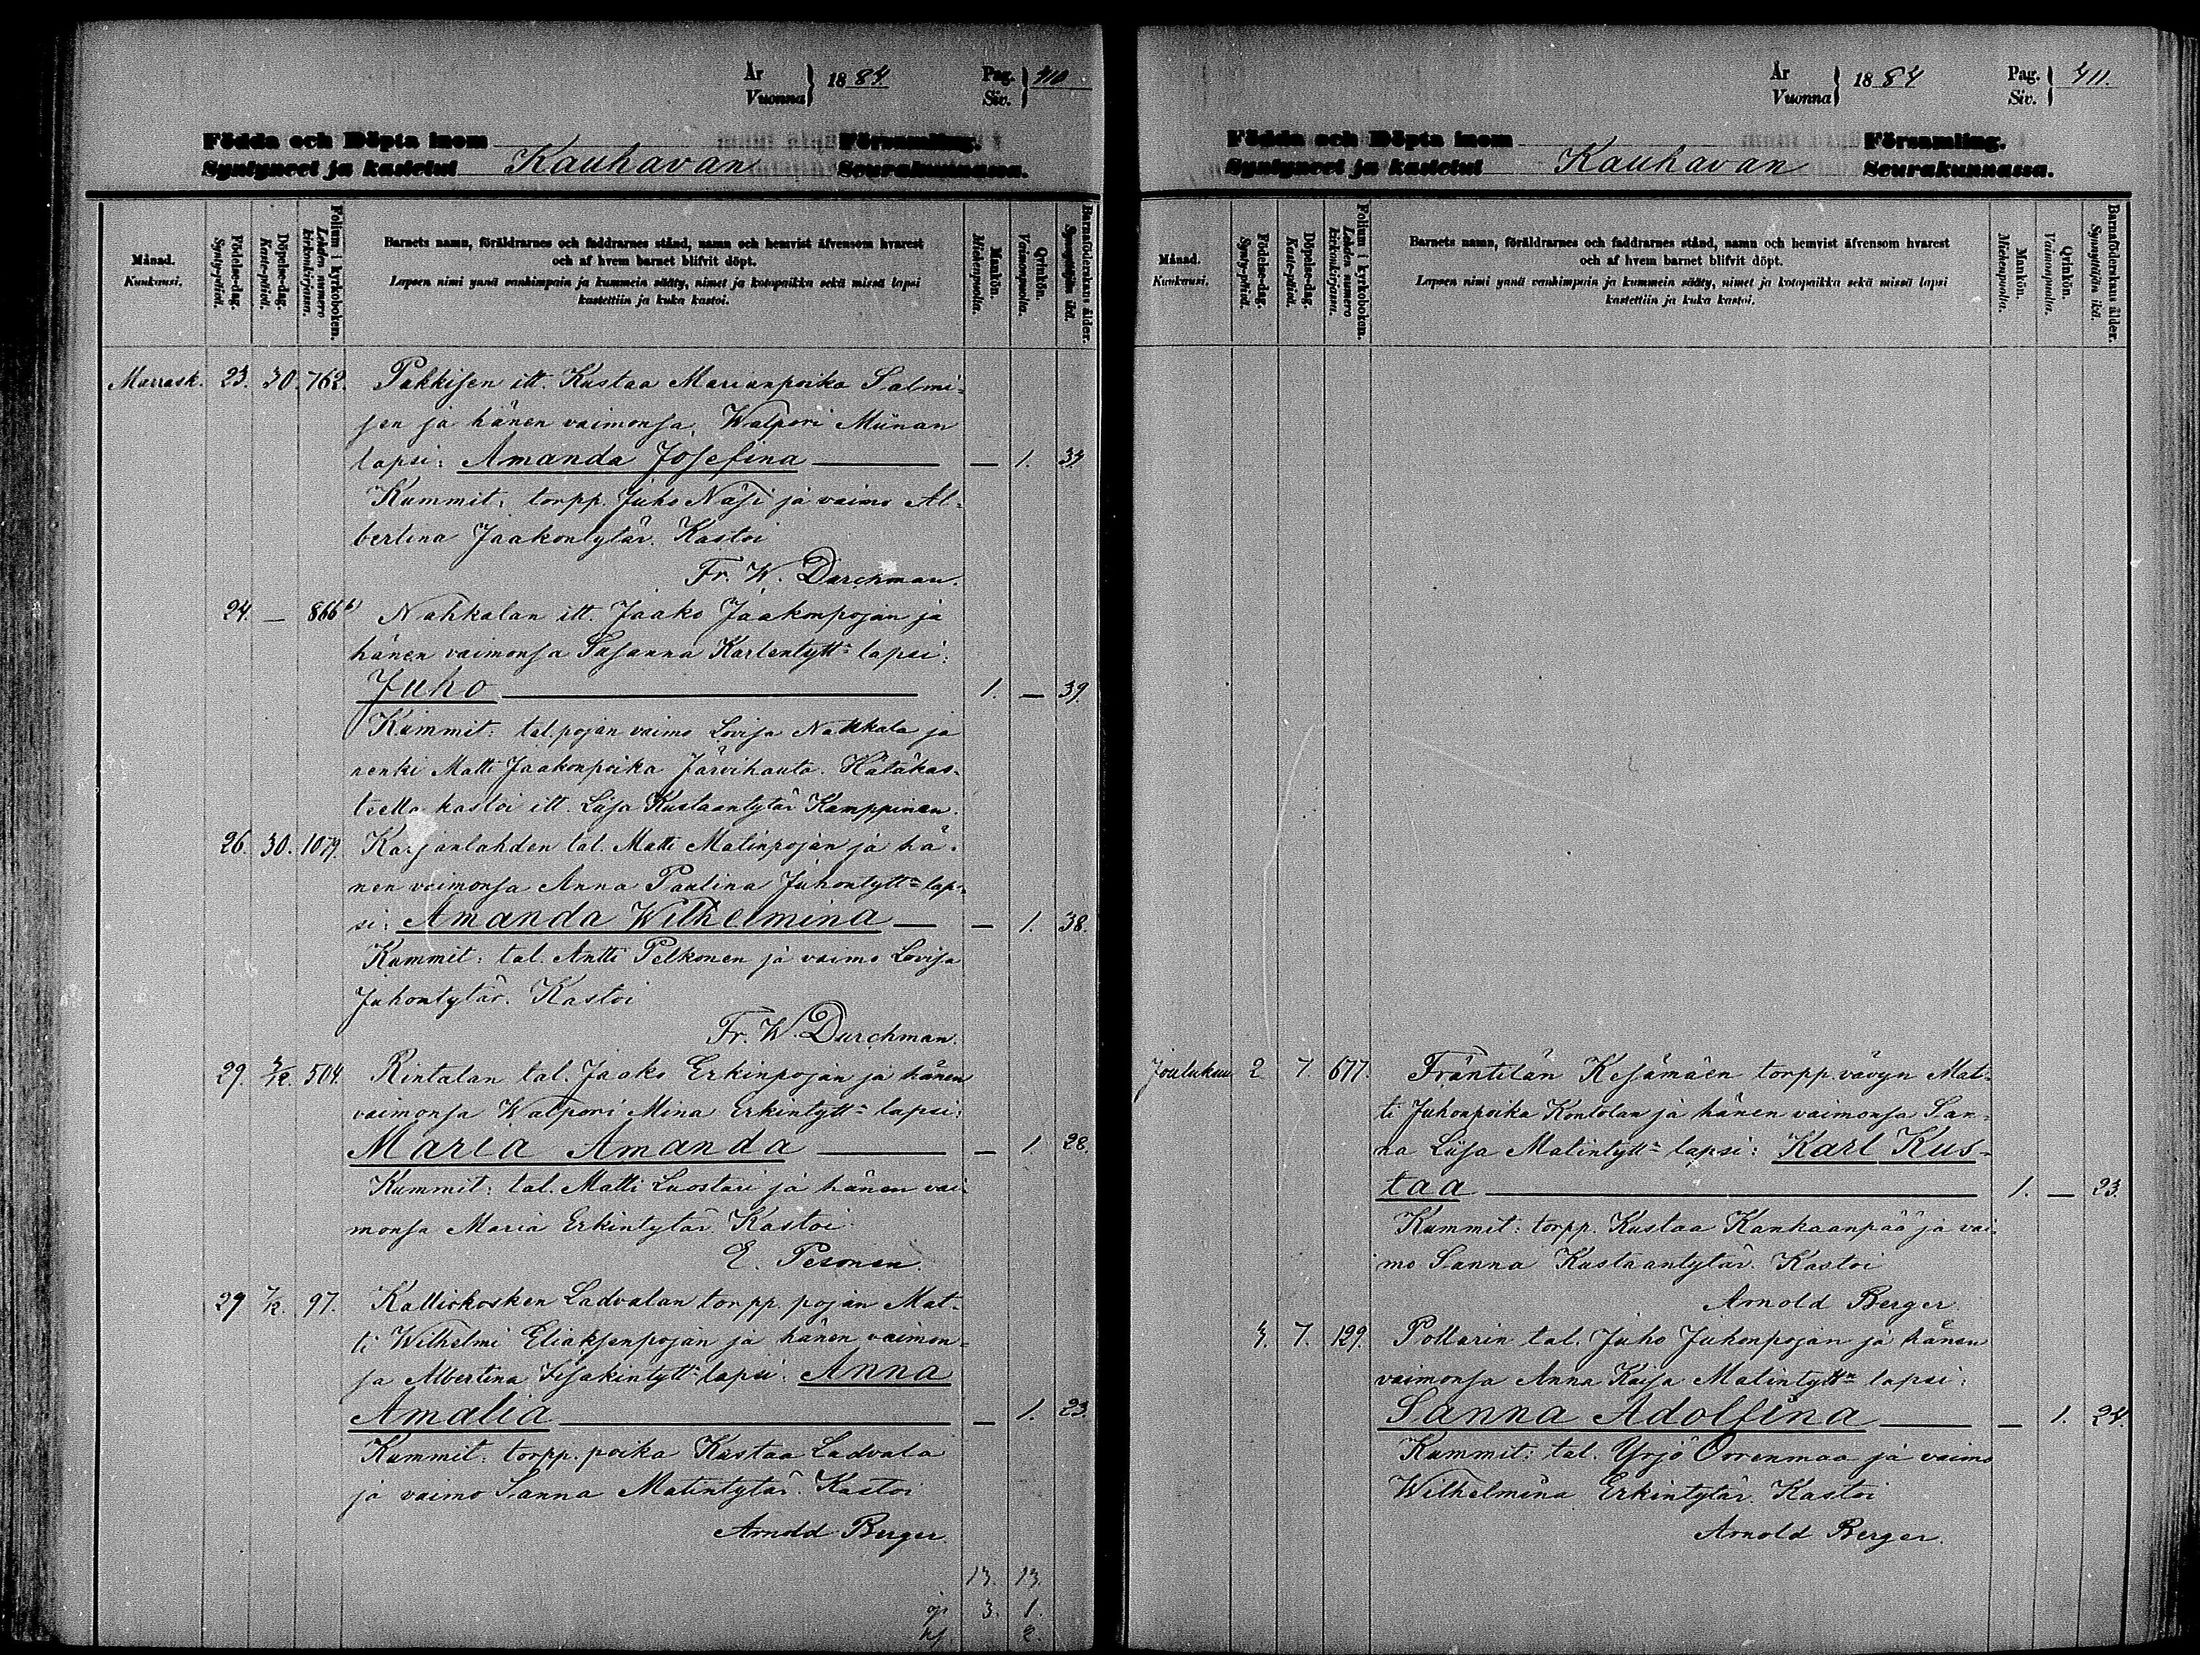 År
Vuonna } 1884. Pag.
Siv. } 410
Födda och Döpta inom Församling.
Syntyneet ja kastetut Kauhavan Seurakunnassa.
Månad.
Kuukausi.
Födelse-dag.
Synty-päivä.
Döpelse-dag.
Kaste-päivä.
Folium i kyrkoboken.
Lehden numero kirkonkirjassa.
Barnets namn, föräldrarnes och faddrarnes stånd, namn och hemvist äfvensom hvarest
och af hvem barnet blifvit döpt.
Lapsen nimi ynnä vanhimpain ja kummein sääty, nimet ja kotopaikka sekä missä lapsi
kastettiin ja kuka kastoi.
Mankön.
Miehenpuolia.
Qvinkön.
Vaimonpuolia.
Barnaföderskans ålder.
Synnyttäjän ikä.
Marrask. 23. 30. 762. Pakkisen itt. Kustaa Marianpoika Salmi-
sen ja hänen vaimonsa, Walpori Miinan
lapsi: Amanda Josefina — — 1. 34
Kummit: torpp. Juho Näsi ja vaimo Al-
bertina Jaakontytär. Kastoi
Fr. W. Durchman.
24. — 866 b) Nahkalan itt. Jaako Jaakonpojan ja
hänen vaimonsa Susanna Karlentytt:n lapsi:
Juho — 1. — 39.
Kummit: tal.pojan vaimo Lovisa Nahkala ja
renki Matti Jaakonpoika Järvihauta. Hätäkas-
teella kastoi itt. Liisa Kustaantytär Kamppinen.
26. 30. 1079. Karjanlahden tal. Matti Matinpojan ja hä-
nen vaimonsa Anna Paulina Juhontytt:n lap-
si: Amanda Wilhelmina — — 1. 38.
Kummit: tal. Antti Pelkonen ja vaimo Lovisa
Juhontytär. Kastoi
Fr. W. Durchman.
29. 504. Rintalan tal. Jaako Erkinpojan ja hänen
vaimonsa Walpori Mina Erkintytt:n lapsi:
Maria Amanda — — 1. 28.
Kummit: tal. Matti Luostari ja hänen vai-
monsa Maria Erkintytär. Kastoi
E. Pesonen.
29 7/12. 97. Kalliokosken Ladvalan torpp. pojan Mat-
ti Wilhelmi Eliaksenpojan ja hänen vaimon-
sa Albertina Iisakintytt:n lapsi: Anna
Amalia — — 1. 23.
Kummit: torpp. poika Kustaa Ladvala
ja vaimo Sanna Matintytär. Kastoi
Arnold Berger.
13. 13.
3. 1.
2.
År
Vuonna } 1884 Pag.
Siv. } 411.
Födda och Döpta inom Församling.
Syntyneet ja kastetut Kauhavan Seurakunnassa.
Månad.
Kuukausi.
Födelse-dag.
Synty-päivä.
Döpelse-dag.
Kaste-päivä.
Folium i kyrkoboken.
Lehden numero kirkonkirjassa.
Barnets namn, föräldrarnes och faddrarnes stånd, namn och hemvist äfvensom hvarest
och af hvem barnet blifvit döpt.
Lapsen nimi ynnä vanhimpain ja kummein sääty, nimet ja kotopaikka sekä missä lapsi
kastettiin ja kuka kastoi.
Mankön.
Miehenpuolia.
Qvinkön.
Vaimonpuolia.
Barnaföderskans ålder.
Synnyttäjän ikä.
Joulukuu 2 7. 677. Fräntilän Kesämäen torpp. vävyn Mat-
ti Juhonpoika Kontolan ja hänen vaimonsa San-
na Liisa Matintytt:n lapsi: Karl Kus-
taa — 1. — 23.
Kummit: torpp. Kustaa Kankaanpää ja vai-
mo Sanna Kustaantytär. Kastoi
Arnold Berger.
4. 7. 129. Pollarin tal. Juho Juhonpojan ja hänen
vaimonsa Anna Kaisa Matintytt:n lapsi:
Sanna Adolfina — — 1. 24.
Kummit: tal. Yrjö Orrenmaa ja vaimo
Wilhelmina Erkintytär. Kastoi
Arnold Berger.